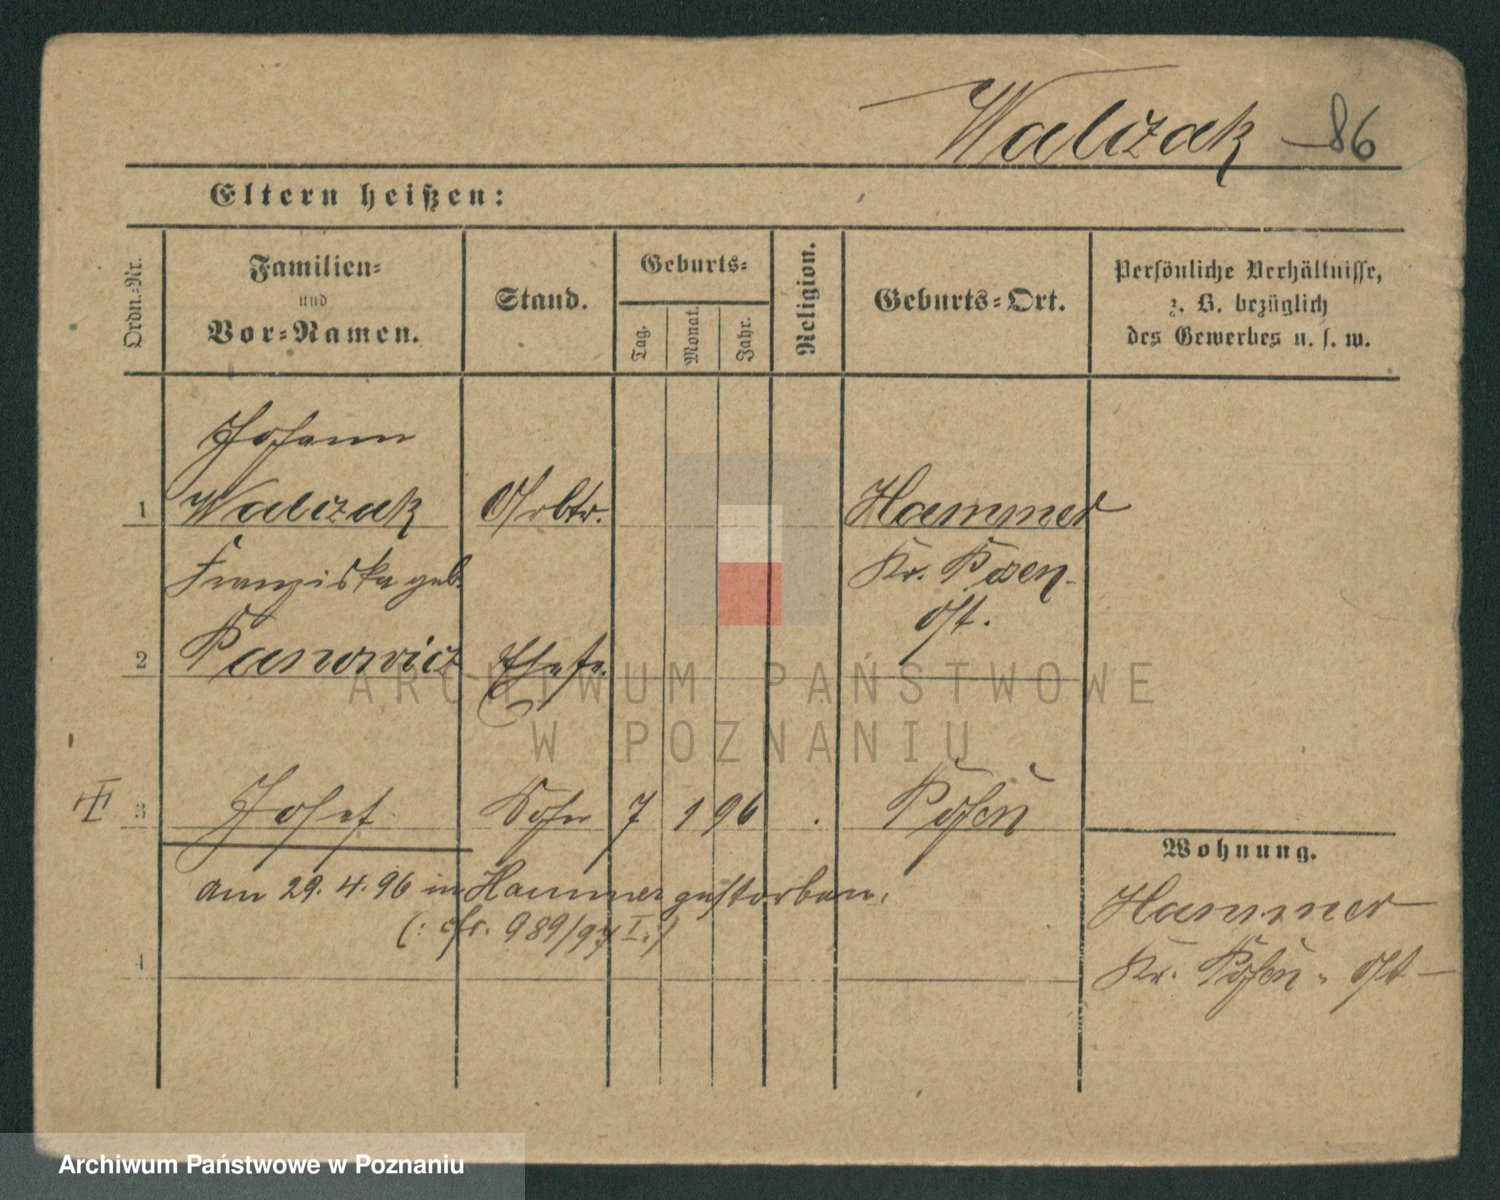 Walczak -86
Eltern heißen:
Ordn.-Nr.
Familien-
und
Vor-Namen.
Stand.
Geburts-
Tag.
Monat.
Jahr.
Religion.
Geburts-Ort.
Persönliche Verhältnisse,
z. B. bezüglich
des Gewerbes u. s. w.
Johann
1 Walczak Arbtr. Hammer
Franziska geb. Kr. Posen
Ost.
2 Panowicz Ehefr.
3 Josef Sohn 7 1 96 . Posen
Wohnung.
am 29. 4. 96 in Hammer gestorben.
(: cfr. 989/97 I.:)
Hammer
Kr. Posen - Ost -
4
ARCHIWUM PAŃSTWOWE
W POZNANIU
Archiwum Państwowe w Poznaniu